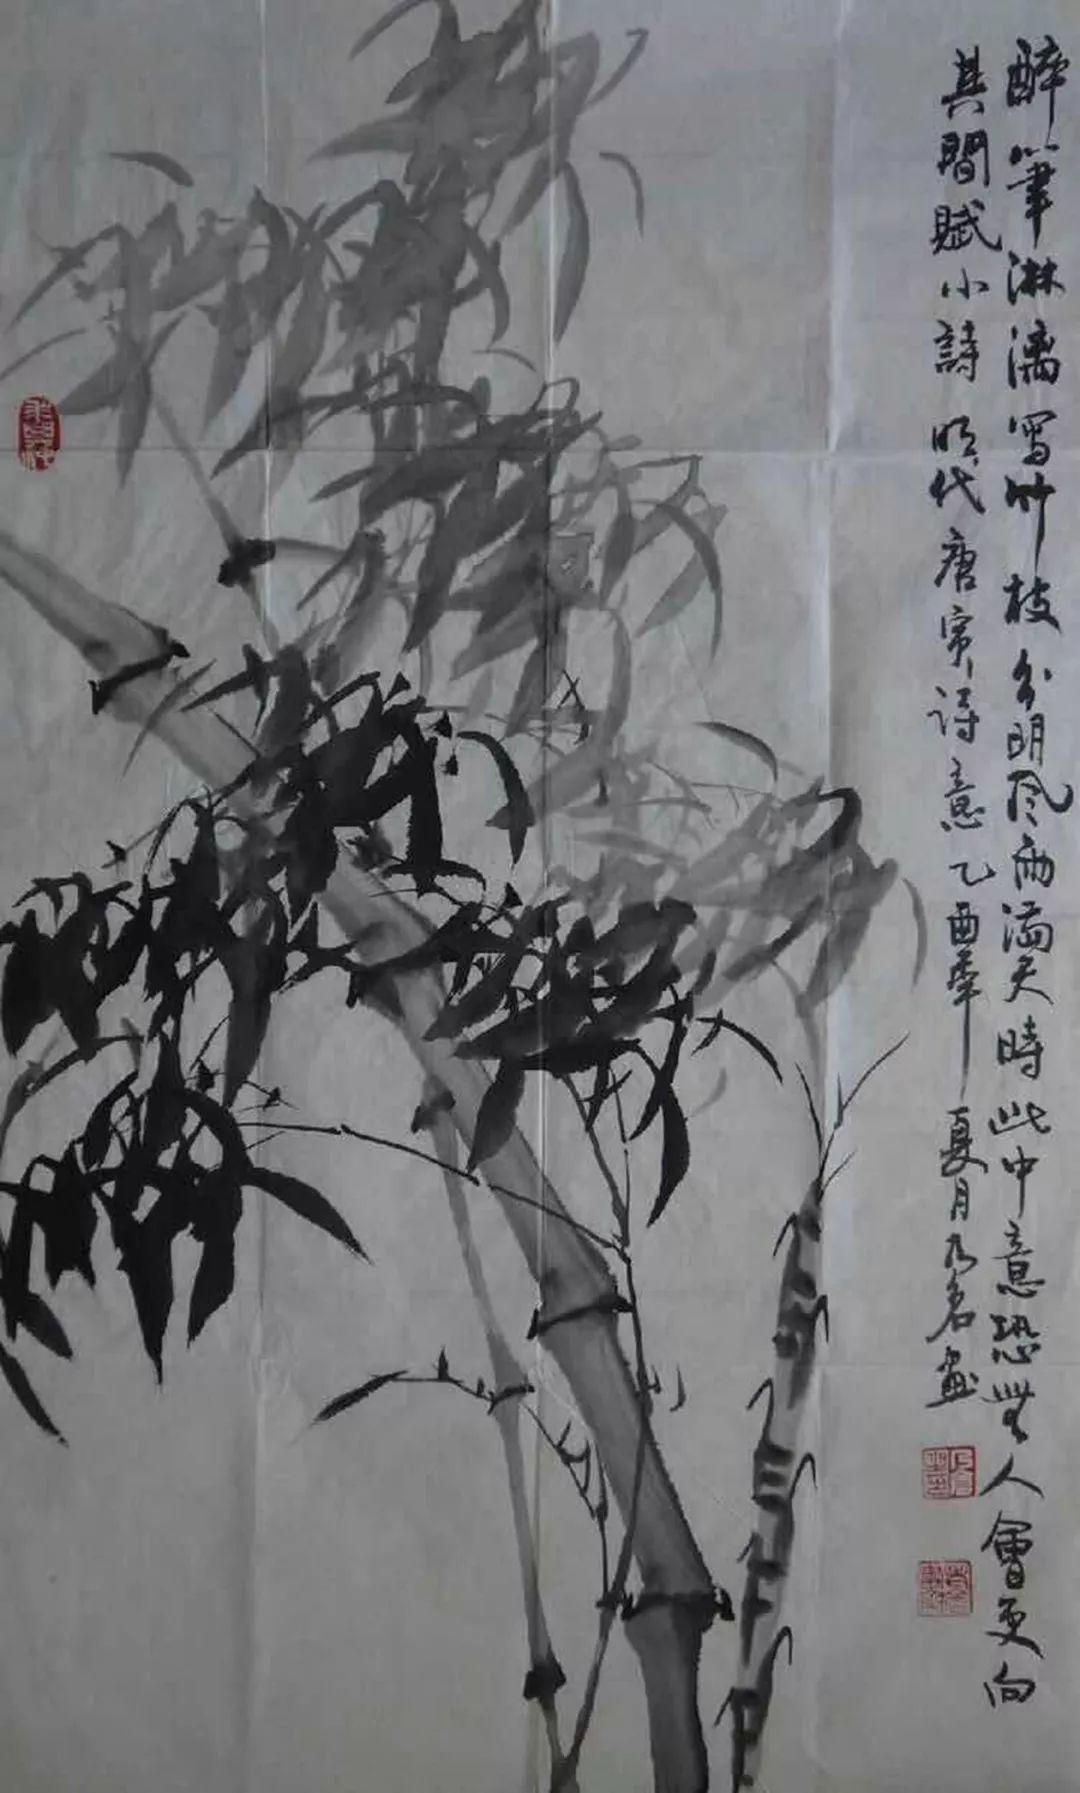 醉筆淋漓寫竹枝分明風雨滿天時此中意恐無人會更向
其間賦小詩 明代唐寅詩意 乙酉年夏月乃名畫